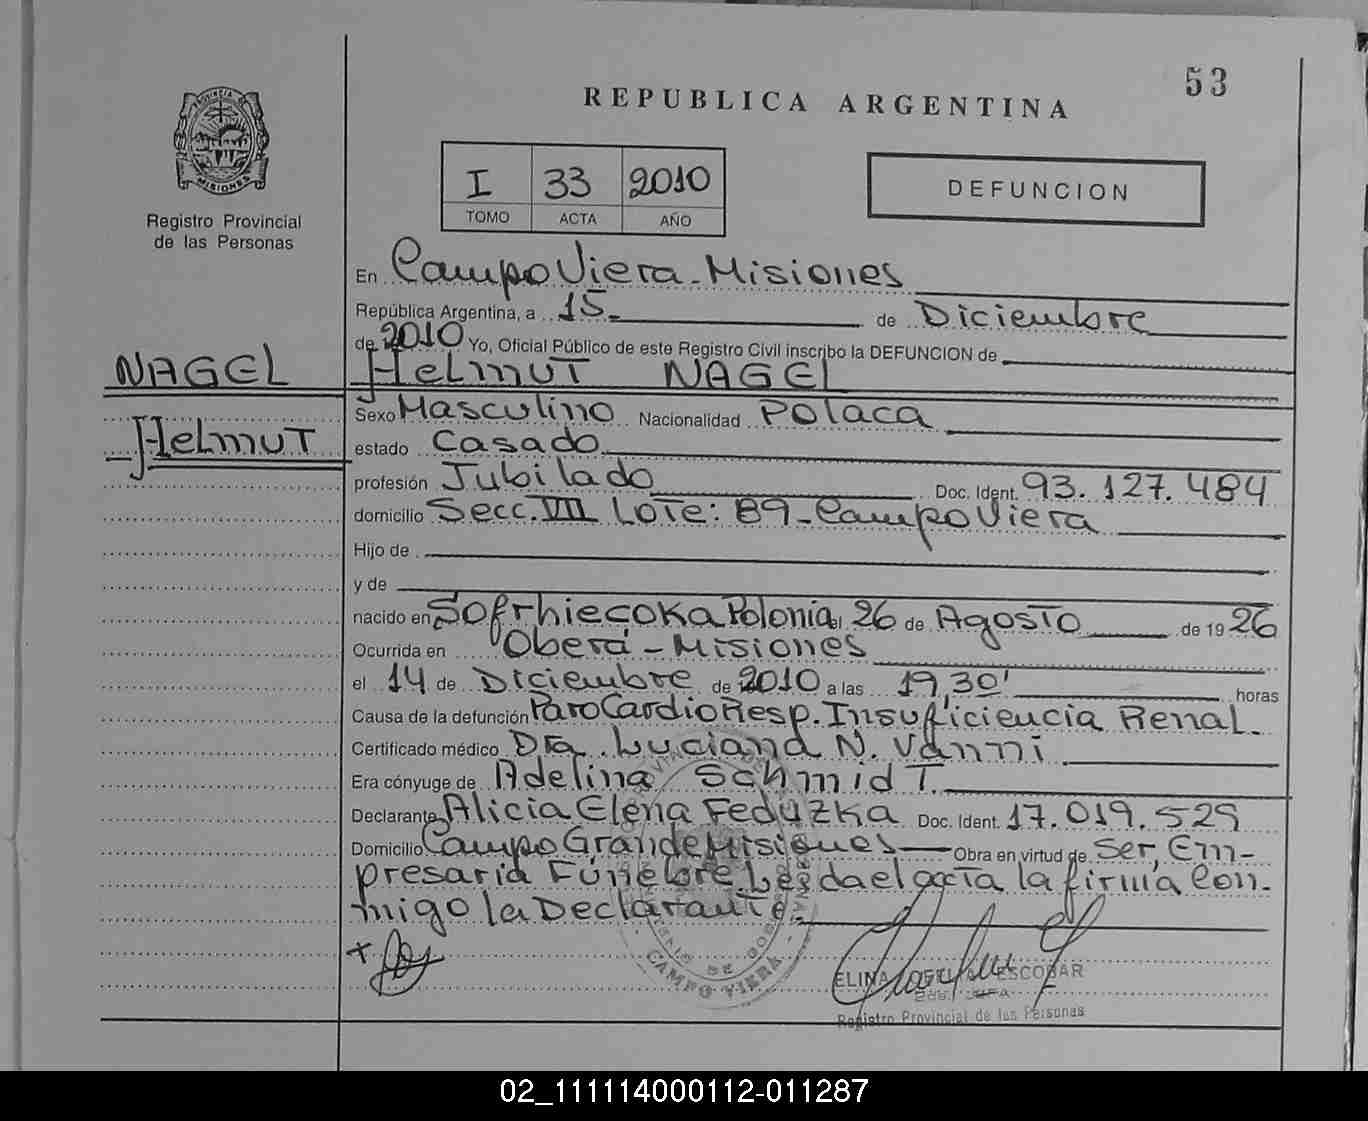 53
REPUBLICA ARGENTINA
PROVINCIA DE
MISIONES
Registro Provincial
de las Personas
I 33 2010
TOMO ACTA AÑO
DEFUNCION
En Campo Viera - Misiones
República Argentina, a 15 de Diciembre
de 2010 Yo, Oficial Público de este Registro Civil inscribo la DEFUNCION de
NAGEL Helmut NAGEL
Helmut
Sexo Masculino Nacionalidad Polaca
estado Casado
profesión Jubilado Doc. Ident. 93.127.484
domicilio Secc. VII Lote: 89 - Campo Viera
Hijo de
y de
nacido en Sofrhiecoka Polonia el 26 de Agosto de 1926
Ocurrida en Oberá - Misiones
el 14 de Diciembre de 2010 a las 19,30' horas
Causa de la defunción Paro Cardio Resp. Insuficiencia Renal.
Certificado médico Dra. Luciana N. Vanni
Era cónyuge de Adelina Schmidt.
Declarante Alicia Elena Feduzka Doc. Ident. 17.019.529
Domicilio Campo Grande Misiones Obra en virtud de Ser, Em-
presaria Fúnebre. Leída el acta la firma Con-
migo la Declarante.
CAMPO VIERA
ELINA ESCOBAR
Registro Provincial de las Personas
02_111114000112-011287